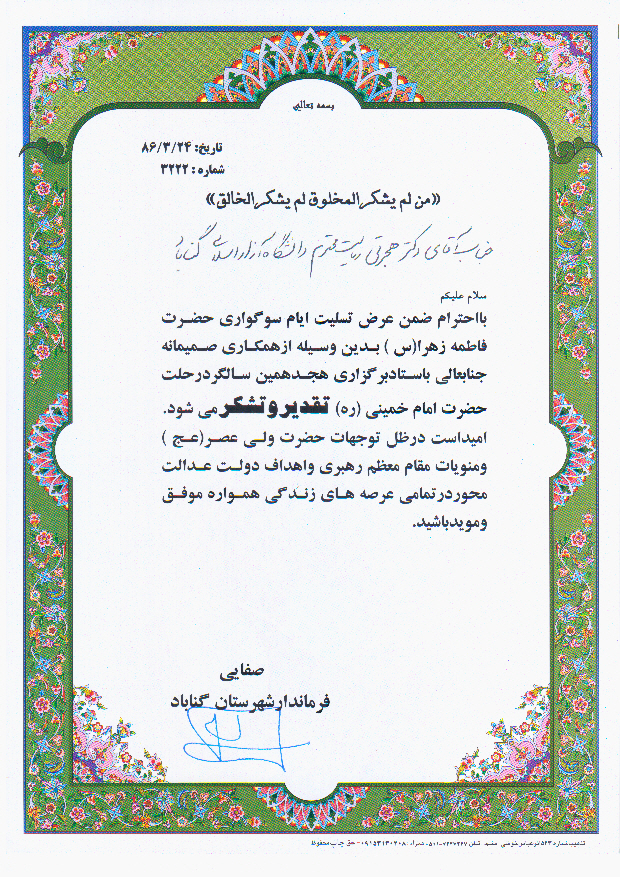 بسمه تعالی
تاریخ: ۸۶/۳/۲۴
شماره: ۳۲۲۲
«من لم یشکر المخلوق لم یشکر الخالق»
جناب آقای دکتر هجرتی ریاست محترم دانشگاه آزاد اسلامی گناباد
سلام علیکم
بااحترام ضمن عرض تسلیت ایام سوگواری حضرت
فاطمه زهرا(س) بدین وسیله ازهمکاری صمیمانه
جنابعالی باستادبرگزاری هجدهمین سالگردرحلت
حضرت امام خمینی (ره) تقدیروتشکرمی شود.
امیداست درظل توجهات حضرت ولی عصر(عج)
ومنویات مقام معظم رهبری واهداف دولت عدالت
محوردرتمامی عرصه های زندگی همواره موفق
ومویدباشید.
صفایی
فرماندارشهرستان گناباد